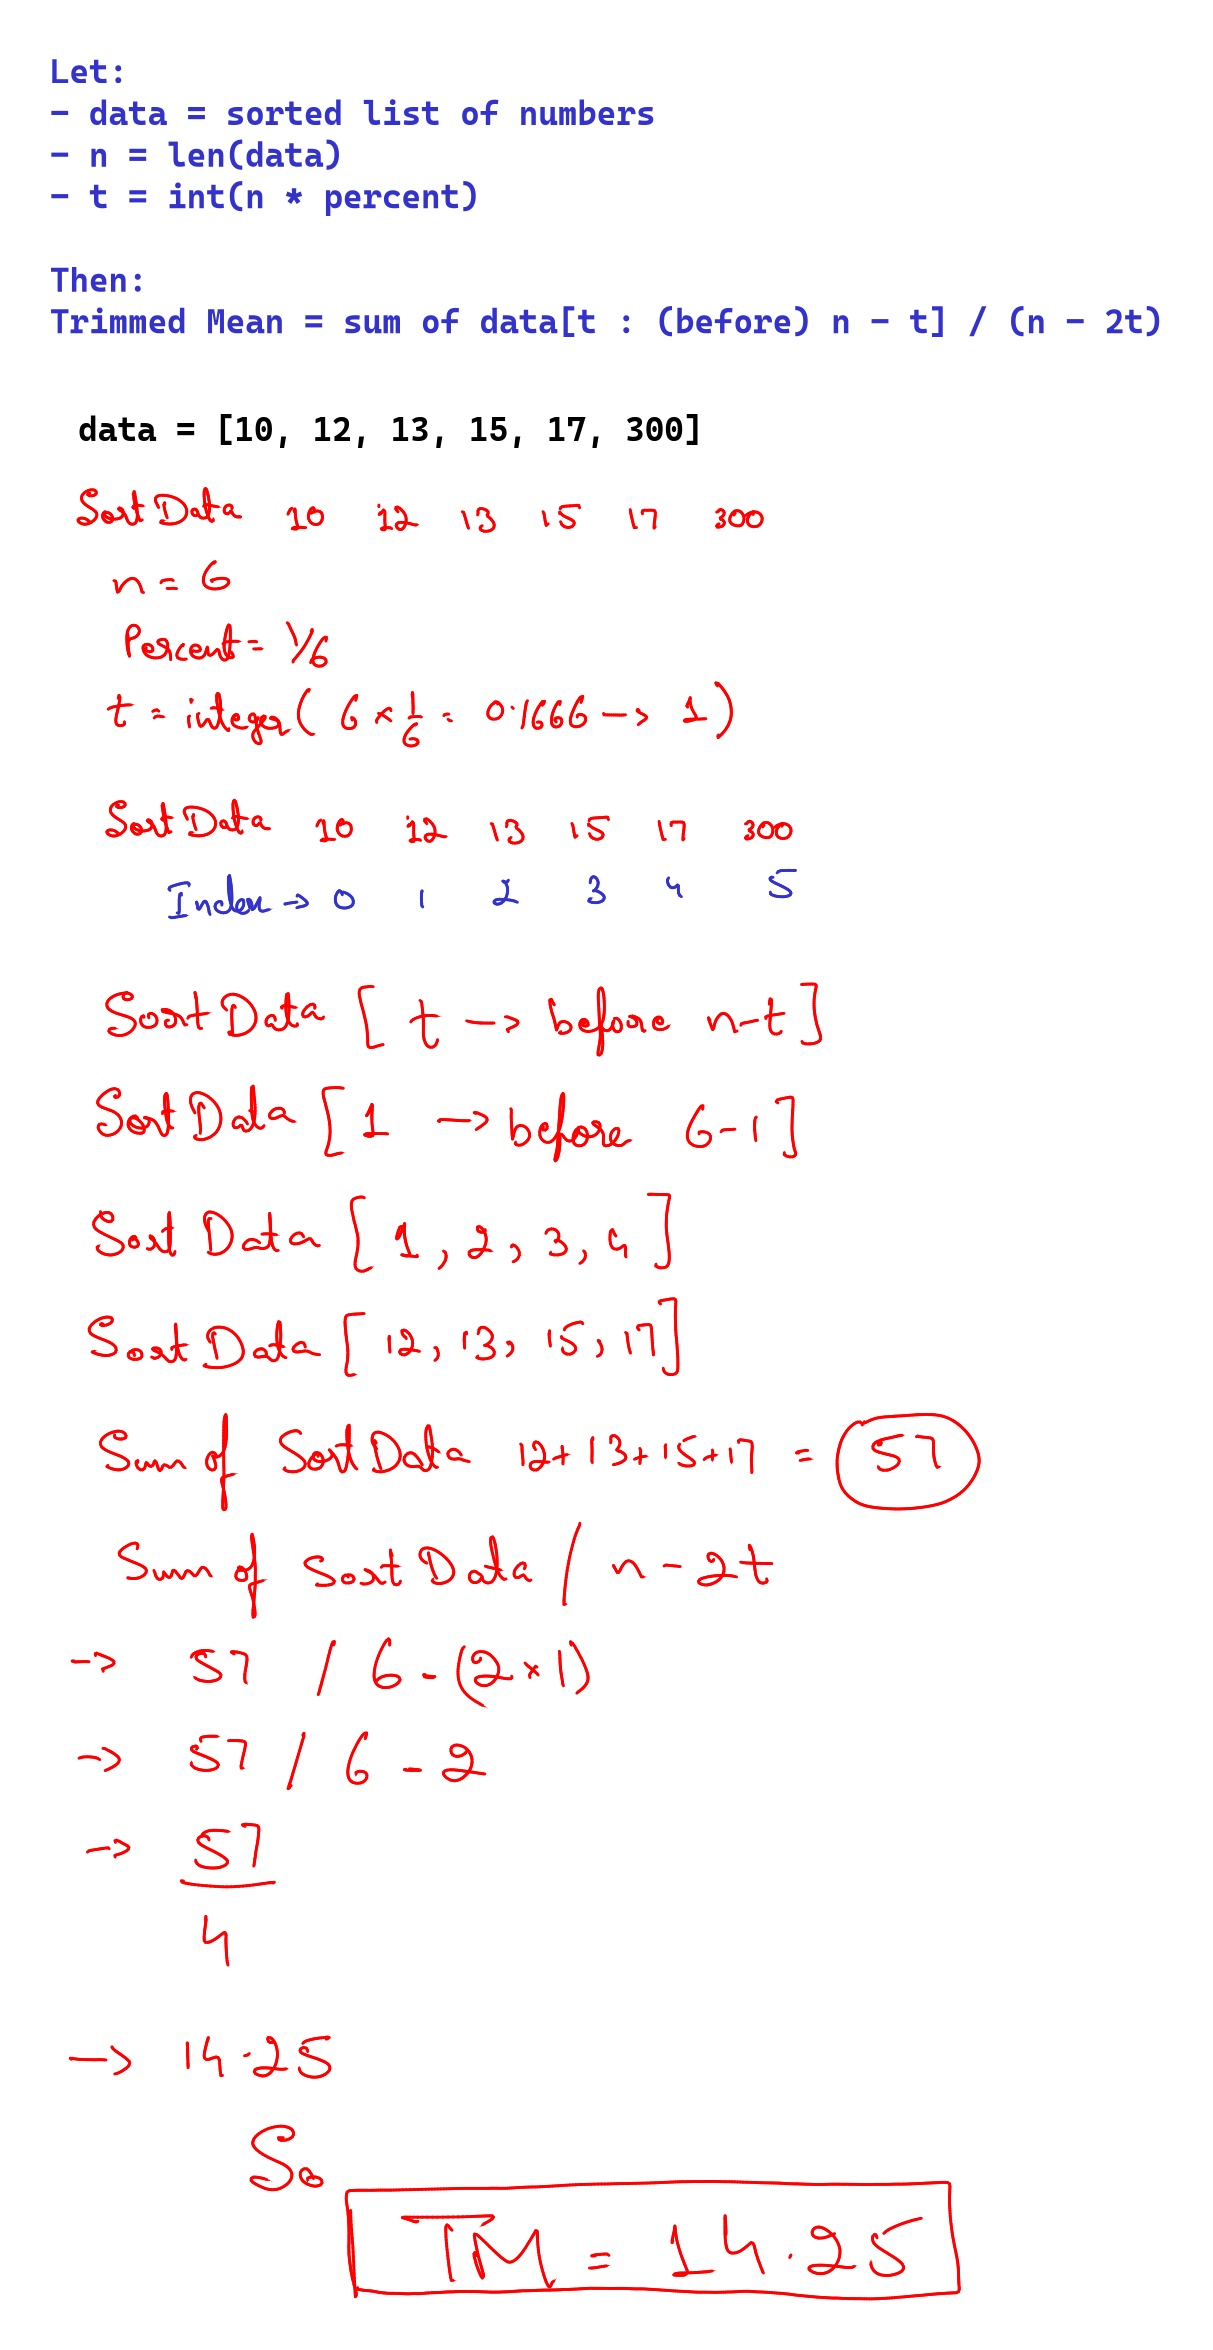 Let:
- data = sorted list of numbers
- n = len(data)
- t = int(n * percent)
Then:
Trimmed Mean = sum of data[t : (before) n - t] / (n - 2t)
data = [10, 12, 13, 15, 17, 300]
Sort Data 10 12 13 15 17 300
n = 6
Percent = 1/6
t = integer ( 6 × 1/6 = 0.1666 -> 1 )
Sort Data 10 12 13 15 17 300
Index -> 0 1 2 3 4 5
Sort Data [ t -> before n-t ]
Sort Data [ 1 -> before 6-1 ]
Sort Data [ 1 , 2 , 3 , 4 ]
Sort Data [ 12, 13, 15, 17 ]
Sum of Sort Data 12+13+15+17 = 57
Sum of Sort Data / n - 2t
-> 57 / 6 - (2×1)
-> 57 / 6 - 2
-> 57
4
-> 14.25
So
TM = 14.25